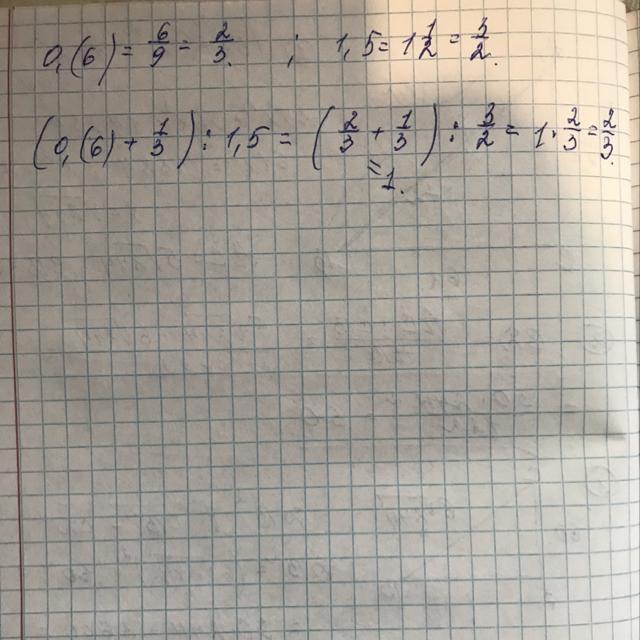 0,(6) = 6/9 = 2/3. ; 1,5 = 1 1/2 = 3/2.
(0,(6) + 1/3) : 1,5 = (2/3 + 1/3) : 3/2 = 1 · 2/3 = 2/3.
= 1.